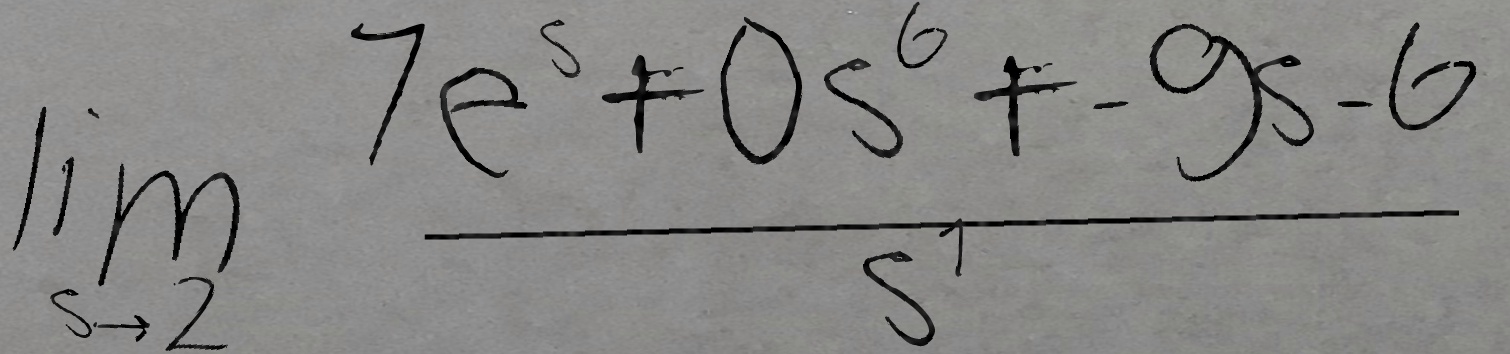 \lim_{s \to 2} \frac{7e^s + 0s^6 + -9s - 6}{s^1}